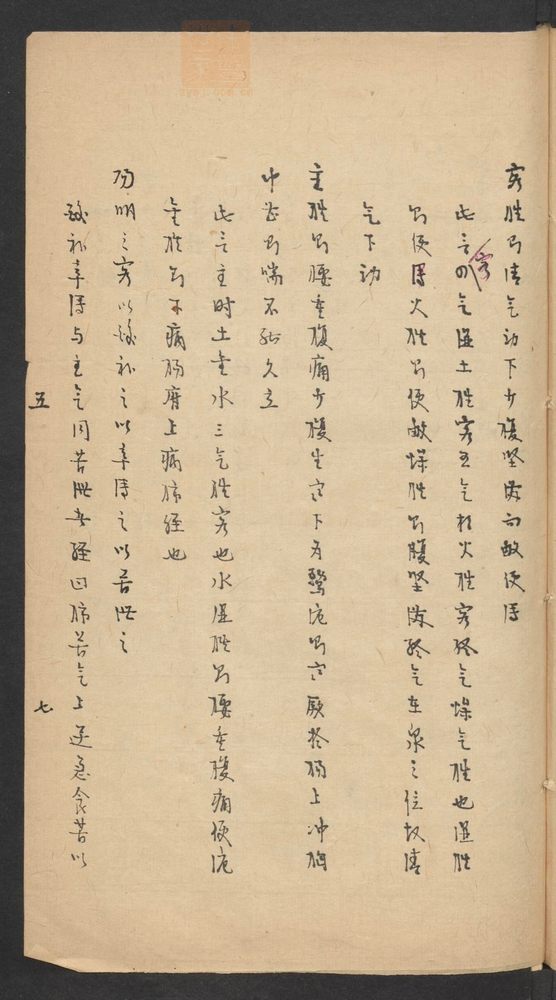 客胜则清气动下少腹坚满而数便泻
此言客四气湿土胜客五气相火胜客终气燥气胜也湿胜
则便泻火胜则便数燥胜则腹坚满终气在泉之位故清
气下动
主胜则腰重腹痛少腹生寒下为鹜溏则寒厥於肠上冲胸
中甚则喘不能久立
此言主时土金水三气胜客也水湿胜则腰重腹痛便溏
金胜则下病肠上病肺经也
阳明之客以酸补之以辛泻之以苦泄之
酸补辛泻与主气同苦泄者经曰肺苦气上逆急食苦以
五
七